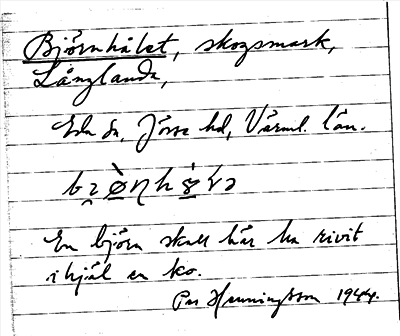 Björnhålet, skogsmark,
Långlanda,
Eda sn, Jösse hd, Värml. län.
En björn skall här ha rivit
ihjäl en ko.
Per Henningsson 1944.